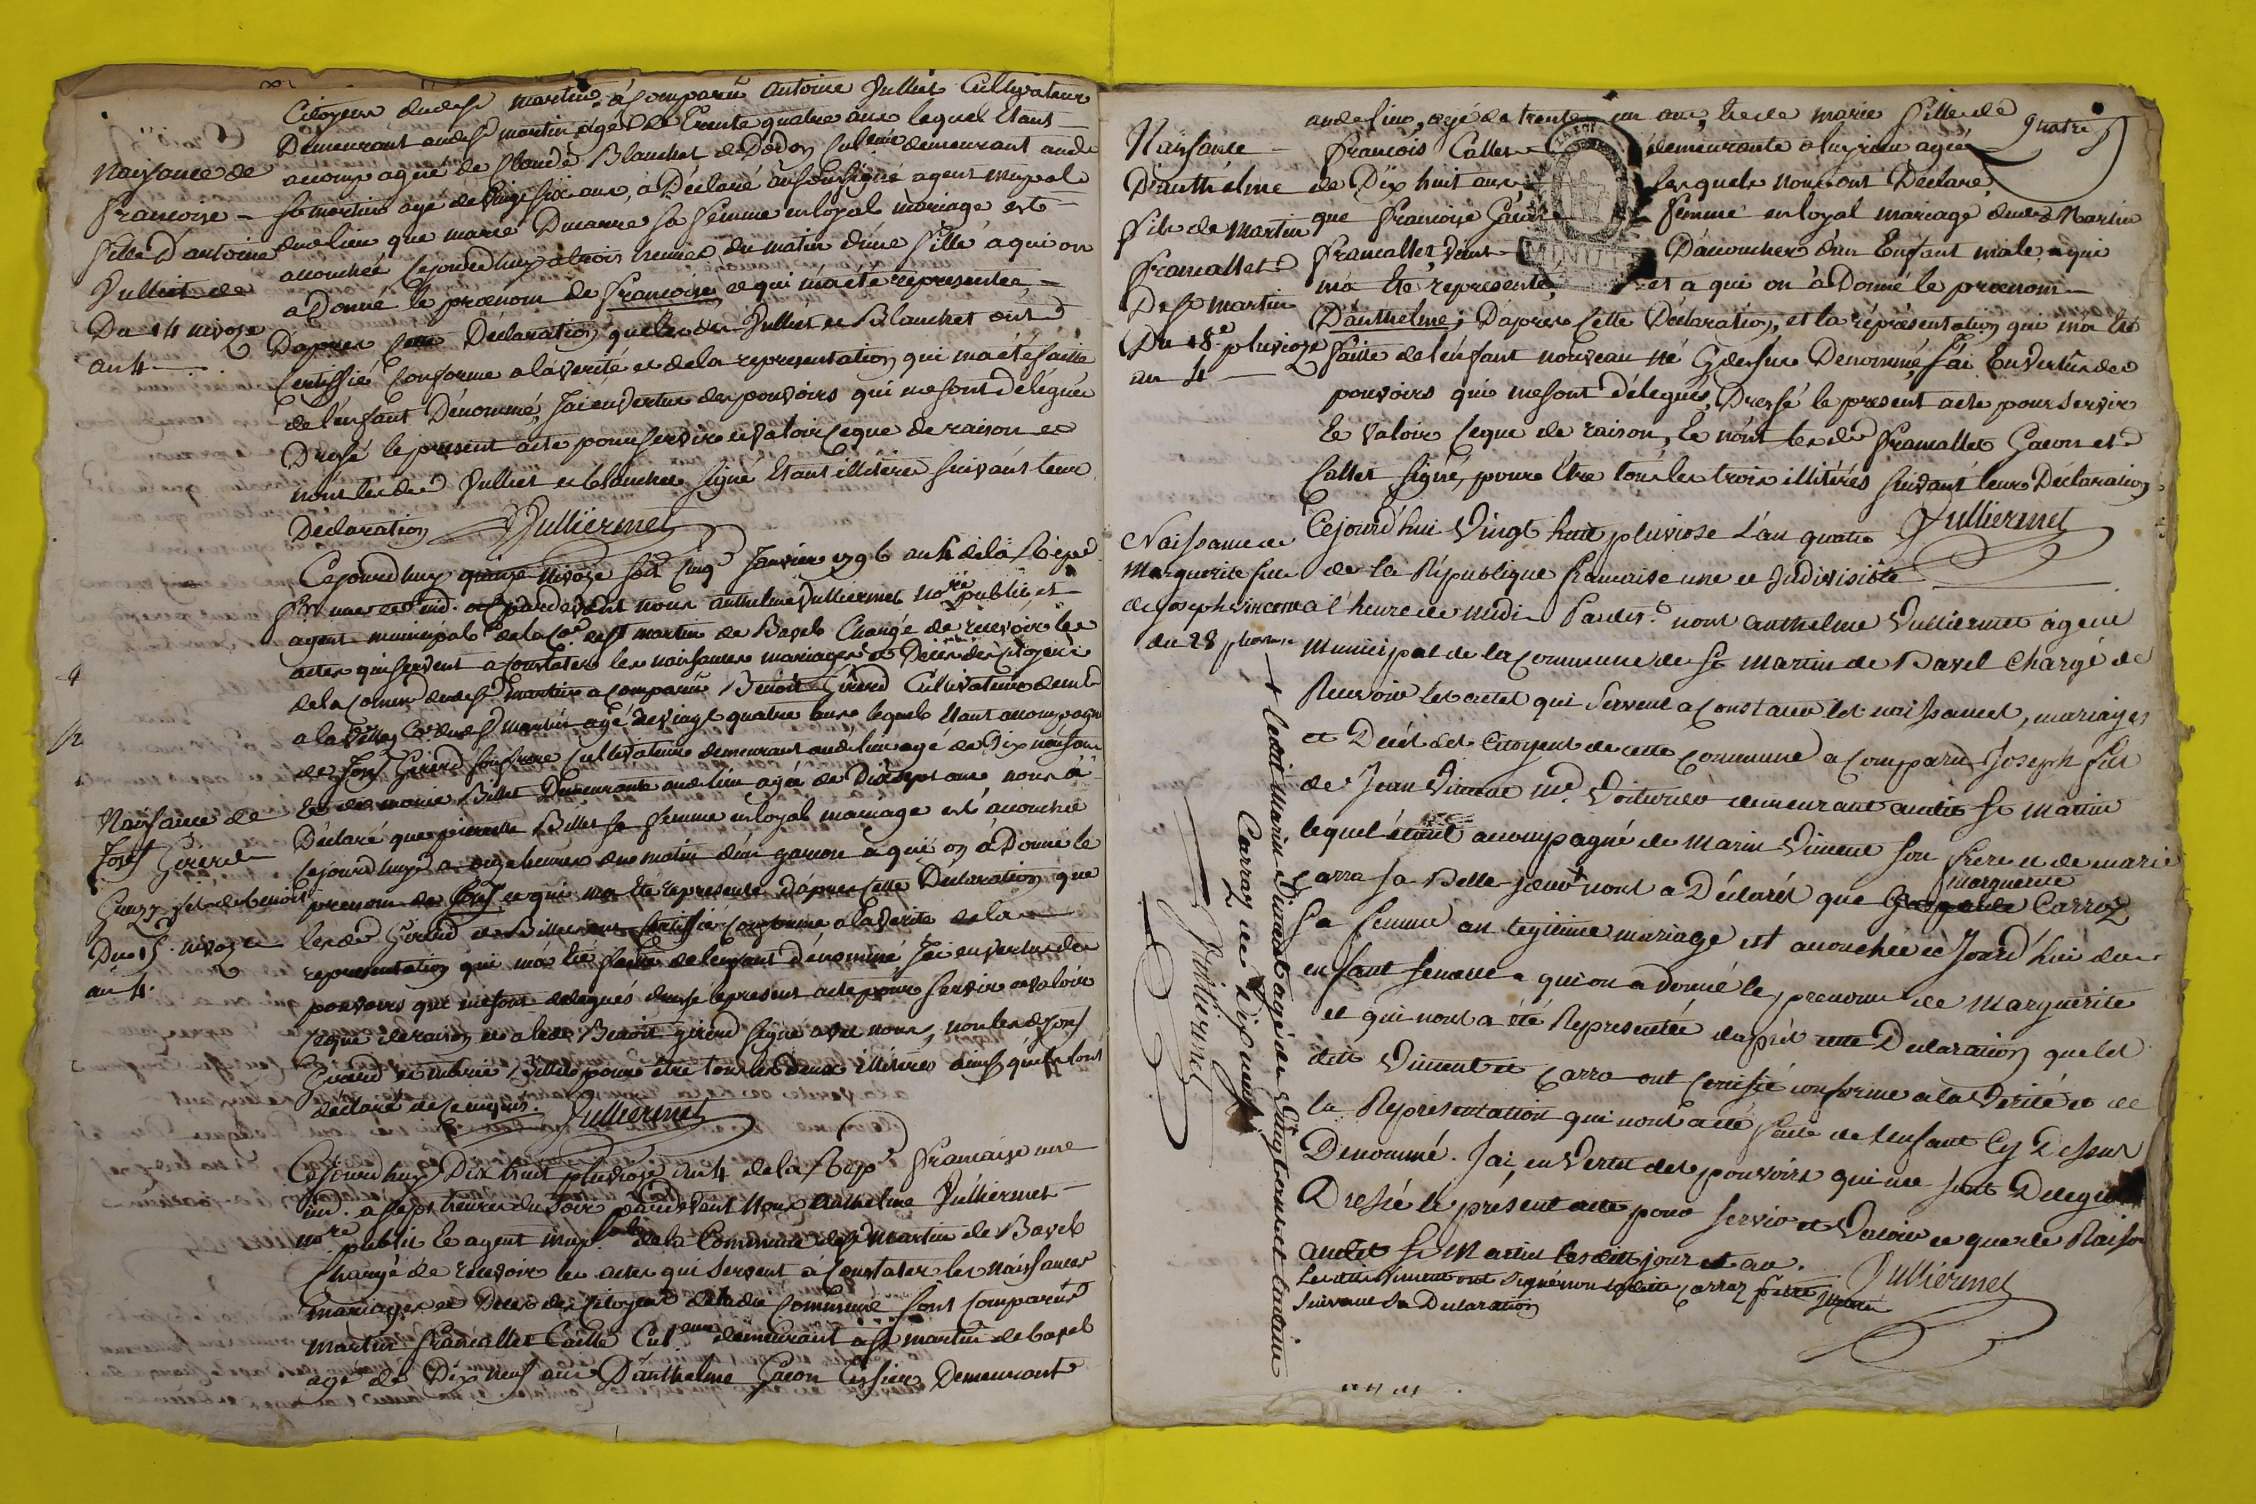 Citoyens dudt St martin à Comparu antoine Vulliet Cultivateur
Demeurant audt St martin, agé de Trente quatre ans lequel Etant
accompagné de Claude Blanchet de Dodon demeurant aude
St martin agé de vingt six ans, à Déclaré au soussigné agent mupal
dudt lieu que marie Ducarre sa femme en loyal mariage est
accouchée Cejourdhuy a trois heures du matin d'une fille a qui on
a Donné le prenom de francoise et qui m'a été representée
Dapres cette Déclaration que lesdts Vulliet et Blanchet ont
Certiffié Conforme a la verité et de la representation qui ma été faitte
de l'enfant Dénommé, J'ai en vertus des pouvoirs qui me sont délégués
Dressé le present acte pour servir et valoir ceque de raison et
nont lesdts Vulliet et blanchet signé Etant illitérés suivant leur
Declaration Vulliermet
Naissance de
francoise
fille D'antoine
Vulliet de
Du 14 nivoze
an 4
Cejourdhuy quinze Nivoze soit Cinq Janvier 1796 an 4 de la Répe
fse une et ind. et pardevant nous anthelme Vulliermet nore public et
agent municipal de la Cne de St martin de Bavel Chargé de recevoir les
actes qui servent a Constater les naissances mariages et Déces des Citoyens
de la Comune dudt St martin a comparu Benoit Girerd Cultivateur demt
a la ville Ce dudt St martin agé de vingt quatre ans lequel etant accompagné
de Josf Girerd son frere Cultivateur demeurant audt lieu agé de Dix neuf ans
Et de marie Billet Demeurante audt lieu agée de Dixsept ans nous à
Déclaré que pierrette Billet sa femme en loyal mariage est accouchée
cejourdhuy a onze heures du matin d'un garcon a qui on à Donné le
prenom de Josf et qui ma été représenté dapres cette Déclaration que
lesdts Girerd et Billet ont Certiffié Conforme a la verité et de la
representation qui m'a été faitte de lenfant dénommé J'ai en vertus des
pouvoirs qui me sont delegués dressé le present acte pour servir et valoir
ceque de raison et a ledt Benoit girerd signé avec nous, non lesdts Josf
Girerd et marie Billet pour être tous les deux illitérés ainsi qu'ils l'ont
declaré de ce enquis. Vulliermet
Naissance de
Josf Girerd
fils de benoit
Du 15. nivoze
an 4.
Cejourdhuy Dix huit pluviose an 4 de la Répe francaise une
ind. a sept heures du soir pardevant Nous anthelme Vulliermet
nore public et agent mupal de la Commune de St martin de Bavel
Chargé de recevoir les actes qui servent a Constater les naissances
mariages et Deces des Citoyens de ladte Commune sont Comparus
martin francallet Caille Culteur demeurant a St martin de bavel
agé de Dix neuf ans D'anthelme Gacon tissier Demeurant
quatre
audt lieu, agé de trente un ans, Et de marie fille de
francois Callet demeurante a agée
de Dix huit ans lesquels nous ont Déclaré,
que francoise Gacon femme en loyal mariage dudt Martin
francallet, vient D'accoucher d'un Enfant male, a qui
m'a été representé et a qui on à Donné le prenom
D'anthelme; D'après Cette Déclaration, et la réprésentation qui m'a été
faite de l'énfant nouveau né Cy dessus Dénommé, J'ai En vertu des
pouvoirs qui me sont délegués, Dressé le present acte pour servir
Et Valoir Ceque de raison, Et n'ont lesdts francallet Gacon et
Callet signé, pour être tous les trois illitérés suivant leur Déclaration
Vulliermet
Naissance
D'anthelme
fils de Martin
francallet
De St martin
Du 18e pluvioze
an 4
MINUTE
Cejourd'hui Vingt huit pluviose L'an quatre
de la République francaise une et Indivisible
a l'heure de midi Pardevt nous anthelme Vulliermet agent
Municipal de la Commune de St Martin de Bavel Chargé de
Recevoir les actes qui Servent a Constater les naissances, mariages
et Décès des Citoyens de cette Commune a Comparu Joseph fils
de Jean Vincent Md. Voiturier demeurant audit St Martin
lequel étant accompagné de Marin Vincent son frere et de marie
Carra sa Belle-sœur nous a Déclarés que marguerite Carroz
sa femme en legitime mariage est accouchée ce Jourd'hui d'un
enfant femelle a qui on a donné le prenom de Marguerite
et qui nous a été Representée daprès cette Déclaration que les
dits Vincent et Carra ont Certifié conforme a la Vérité et de
la Représentation qui nous a été faite de l'enfant Cy Dessus
Denommé. J'ai, en Vertu des pouvoirs qui me sont Delegués
Dressé le présent acte pour servir et Valoir ce que de Raison
audit St Martin lesdits jour et an.
Lesdits Vincent ont signé non ladite Carroz
suivant sa Declaration
Vulliermet
Naissance de
Marguerite fille
de Joseph vincent
du 28 pluviose
+ ledit Marin Vincent agé de Vingt ans et laditte
Carraz de dix neuf
Vulliermet